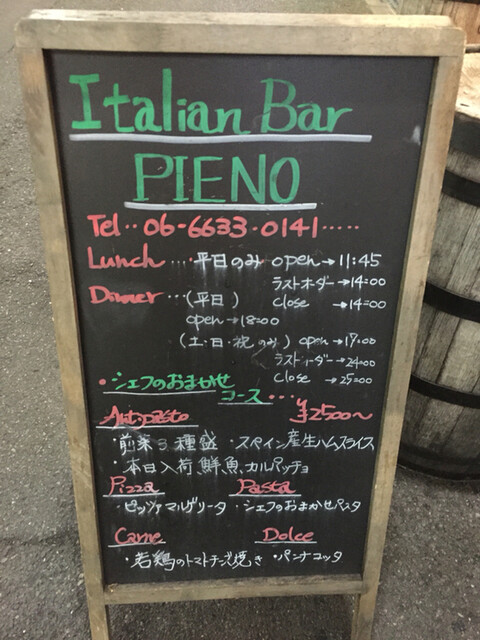 Italian Bar
PIENO
Tel‥06-6633-0141‥‥‥
Lunch…平日のみ open→11:45
ラストオーダー→14:00
Close →14:00
Dinner…(平日)
open→18:00
(土・日・祝のみ) open→17:00
ラストオーダー→24:00
Close →25:00
・シェフのおまかせ
コース・・・¥2500〜
Antipasto
・前菜3種盛 ・スペイン産生ハムスライス
・本日入荷鮮魚カルパッチョ
Pizza Pasta
・ピッツァマルゲリータ ・シェフのおまかせパスタ
Carne Dolce
・若鶏のトマトチーズ焼き ・パンナコッタ